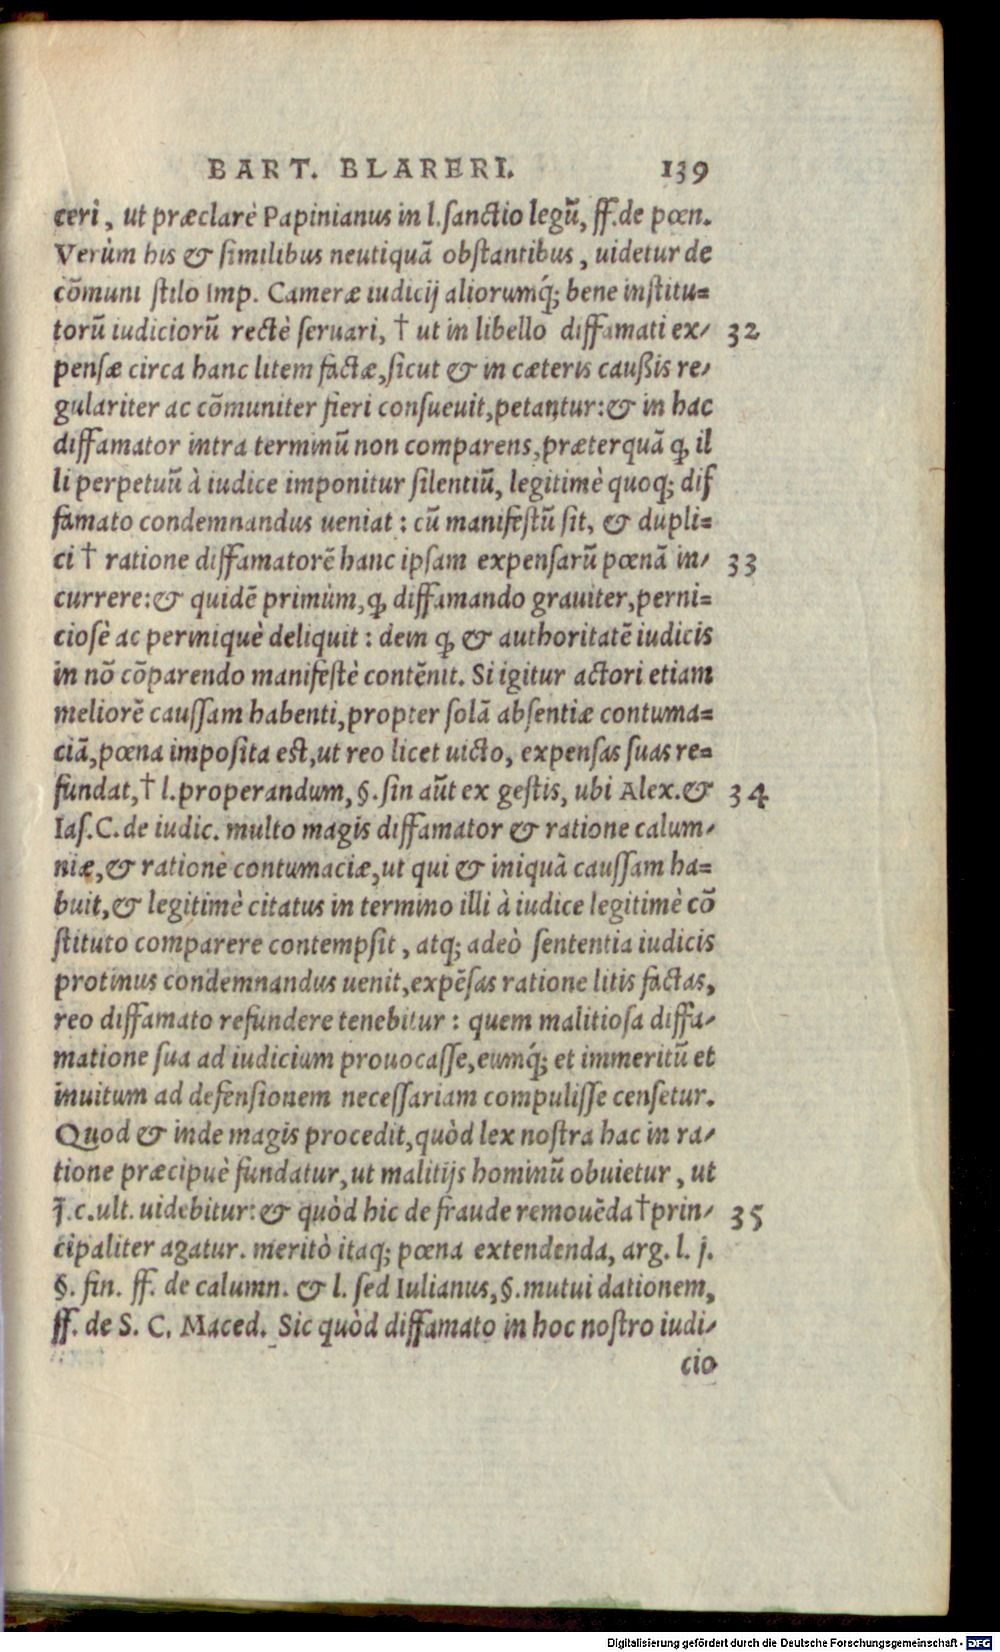 BART. BLARERI. 139
ceri, ut præclarè Papinianus in l. sanctio legũ, ff. de pœn.
Verùm his & similibus neutiquã obstantibus, uidetur de
cõmuni stilo Imp. Cameræ iudicij aliorumq́; bene institu=
torũ iudiciorũ rectè seruari, † ut in libello diffamati ex/ 32
pensæ circa hanc litem factæ, sicut & in cæteris caußis re/
gulariter ac cõmuniter fieri consueuit, petantur: & in hac
diffamator intra terminũ non comparens, præterquã ꝙ il
li perpetuũ à iudice imponitur silentiũ, legitimè quoq; dif
famato condemnandus ueniat: cũ manifestũ sit, & dupli=
ci † ratione diffamatorẽ hanc ipsam expensarũ pœnã in/ 33
currere: & quidẽ primùm, ꝙ diffamando grauiter, perni=
ciosè ac perniquè deliquit: dein ꝙ & authoritatẽ iudicis
in nõ cõparendo manifestè contẽnit. Si igitur actori etiam
meliorẽ caussam habenti, propter solã absentiæ contuma=
ciã, pœna imposita est, ut reo licet uicto, expensas suas re=
fundat, † l. properandum, §. sin aũt ex gestis, ubi Alex. & 34
Ias. C. de iudic. multo magis diffamator & ratione calum/
niæ, & ratione contumaciæ, ut qui & iniquã caussam ha=
buit, & legitimè citatus in termino illi à iudice legitimè cõ
stituto comparere contempsit, atq; adeò sententia iudicis
protinus condemnandus uenit, expẽsas ratione litis factas,
reo diffamato refundere tenebitur: quem malitiosa diffa/
matione sua ad iudicium prouocasse, eumq́; et immeritũ et
inuitum ad defensionem necessariam compulisse censetur.
Quod & inde magis procedit, quòd lex nostra hac in ra/
tione præcipuè fundatur, ut malitijs hominũ obuietur, ut
j. c. ult. uidebitur: & quòd hic de fraude remouẽda † prin/ 35
cipaliter agatur. meritò itaq; pœna extendenda, arg. l. j.
§. fin. ff. de calumn. & l. sed Iulianus, §. mutui dationem,
ff. de S. C. Maced. Sic quòd diffamato in hoc nostro iudi/
cio
Digitalisierung gefördert durch die Deutsche Forschungsgemeinschaft - DFG